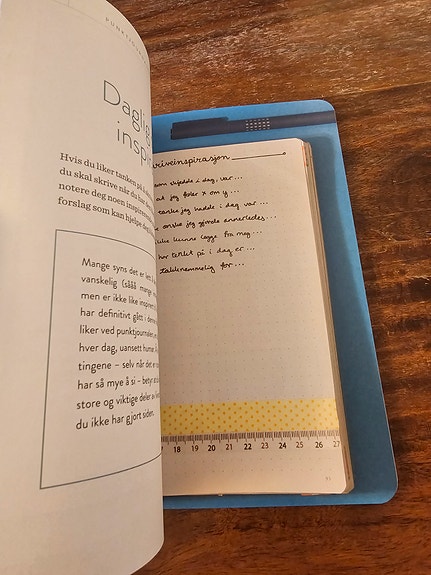 PUNKTJOUR
Daglig
insp
Hvis du liker tanken på å
du skal skrive når du har
notere deg noen inspirer
forslag som kan hjelpe deg
Mange syns det er lett å
vanskelig (sååå mange
men er ikke like inspirer
har definitivt gått i denne
liker ved punktjournalen
hver dag, uansett humør.
tingene – selv når det er
har så mye å si – betyr
store og viktige deler av
du ikke har gjort siden.
riveinspirasjon
som skjedde i dag, var ...
at jeg føler x om y ...
tanke jeg hadde i dag var ...
ønske jeg gjorde annerledes ...
ikke kunne legge fra meg ...
har tenkt på i dag er ...
takknemmelig for ...
17 18 19 20 21 22 23 24 25 26 27